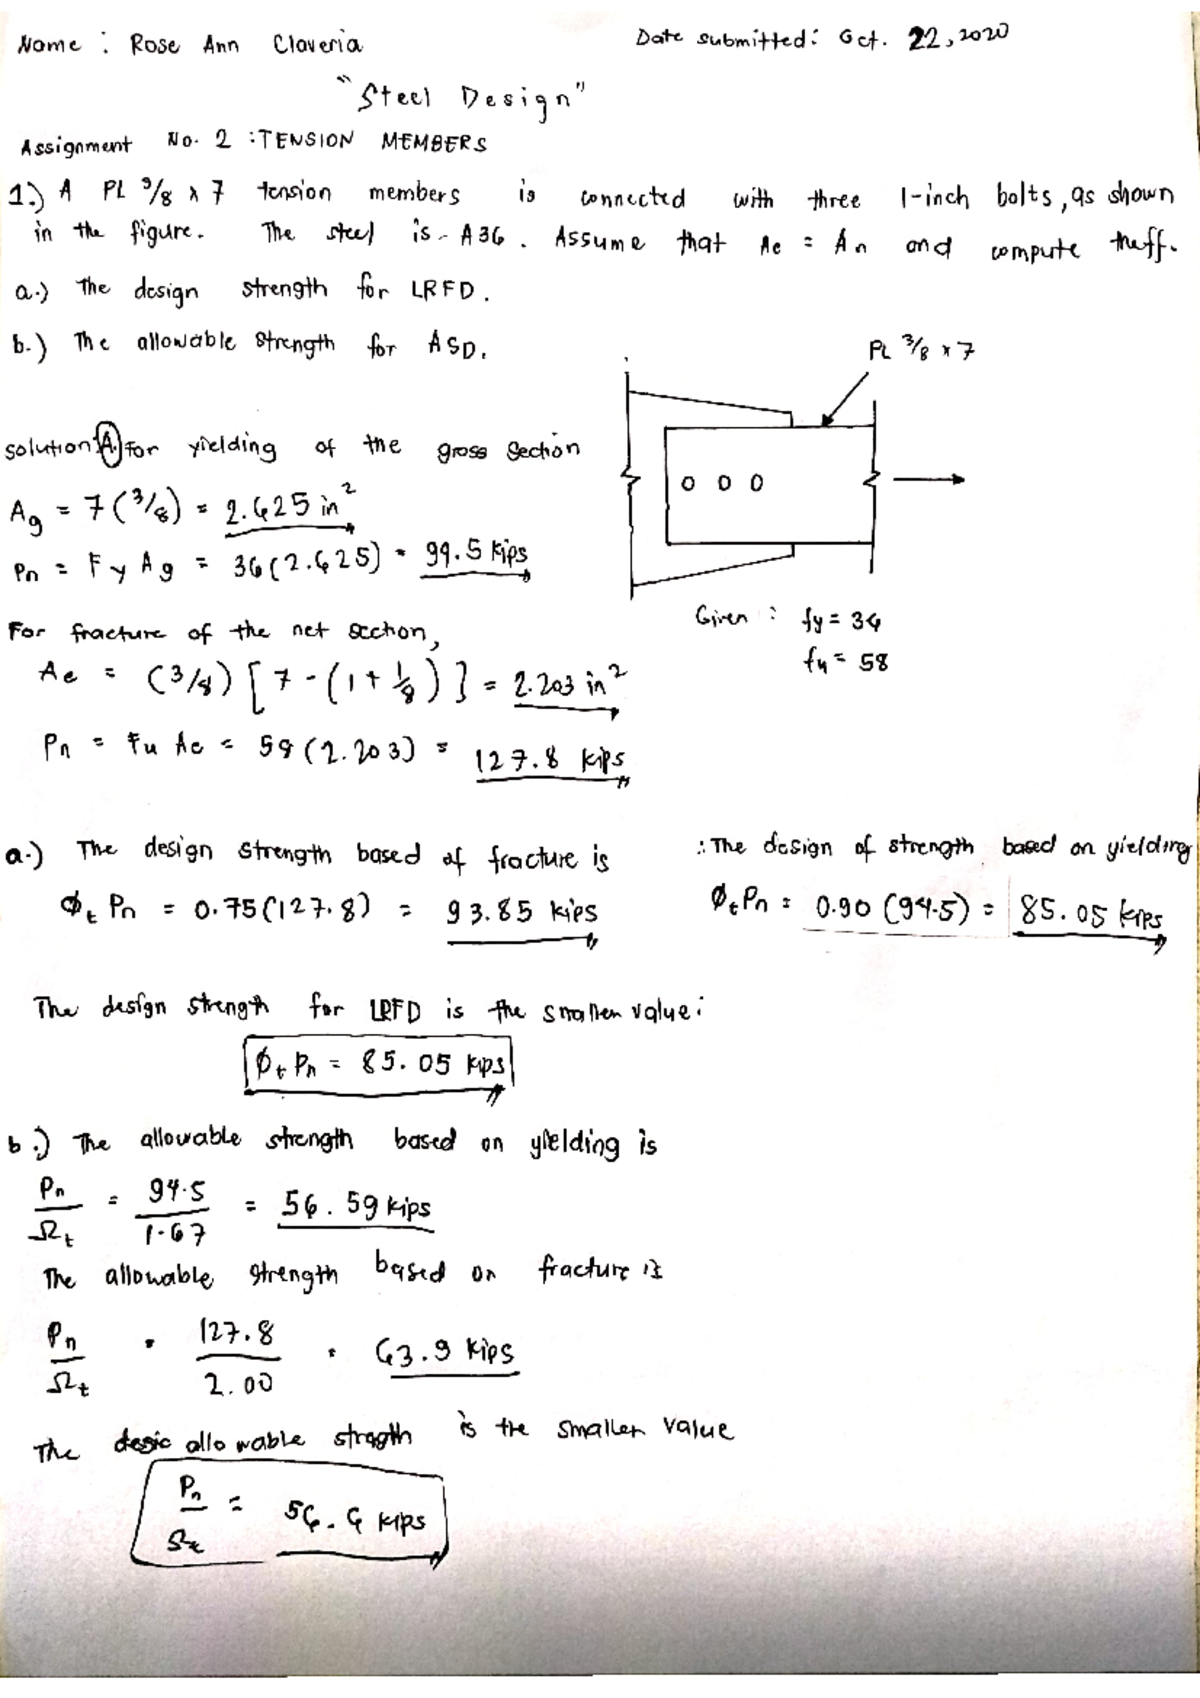 Name : Rose Ann Claveria
Date submitted: Oct. 22, 2020
"Steel Design"
Assignment No. 2 : TENSION MEMBERS
1.) A PL 3/8 x 7 tension members is connected with three 1-inch bolts, as shown
in the figure. The steel is A36. Assume that Ae = An and compute the ff.
a.) The design strength for LRFD.
b.) The allowable strength for ASD.
PL 3/8 x 7
Solution: A. For yielding of the gross section
Ag = 7(3/8) = 2.625 in²
Pn = Fy Ag = 36(2.625) = 99.5 kips
Given : fy = 36
fu = 58
For fracture of the net section,
Ae = (3/8) [7 - (1 + 1/8)] = 2.203 in²
Pn = Fu Ae = 58(2.203) = 127.8 kips
a.) The design strength based of fracture is
Φt Pn = 0.75(127.8) = 93.85 kips
∴ The design of strength based on yielding
Φt Pn = 0.90 (94.5) = 85.05 kips
The design strength for LRFD is the smaller value:
Φt Pn = 85.05 kips
b.) The allowable strength based on yielding is
Pn/Ωt = 94.5/1.67 = 56.59 kips
The allowable strength based on fracture is
Pn/Ωt = 127.8/2.00 = 63.9 kips
The allowable is the smaller value
Pn/Ωt = 56.6 kips